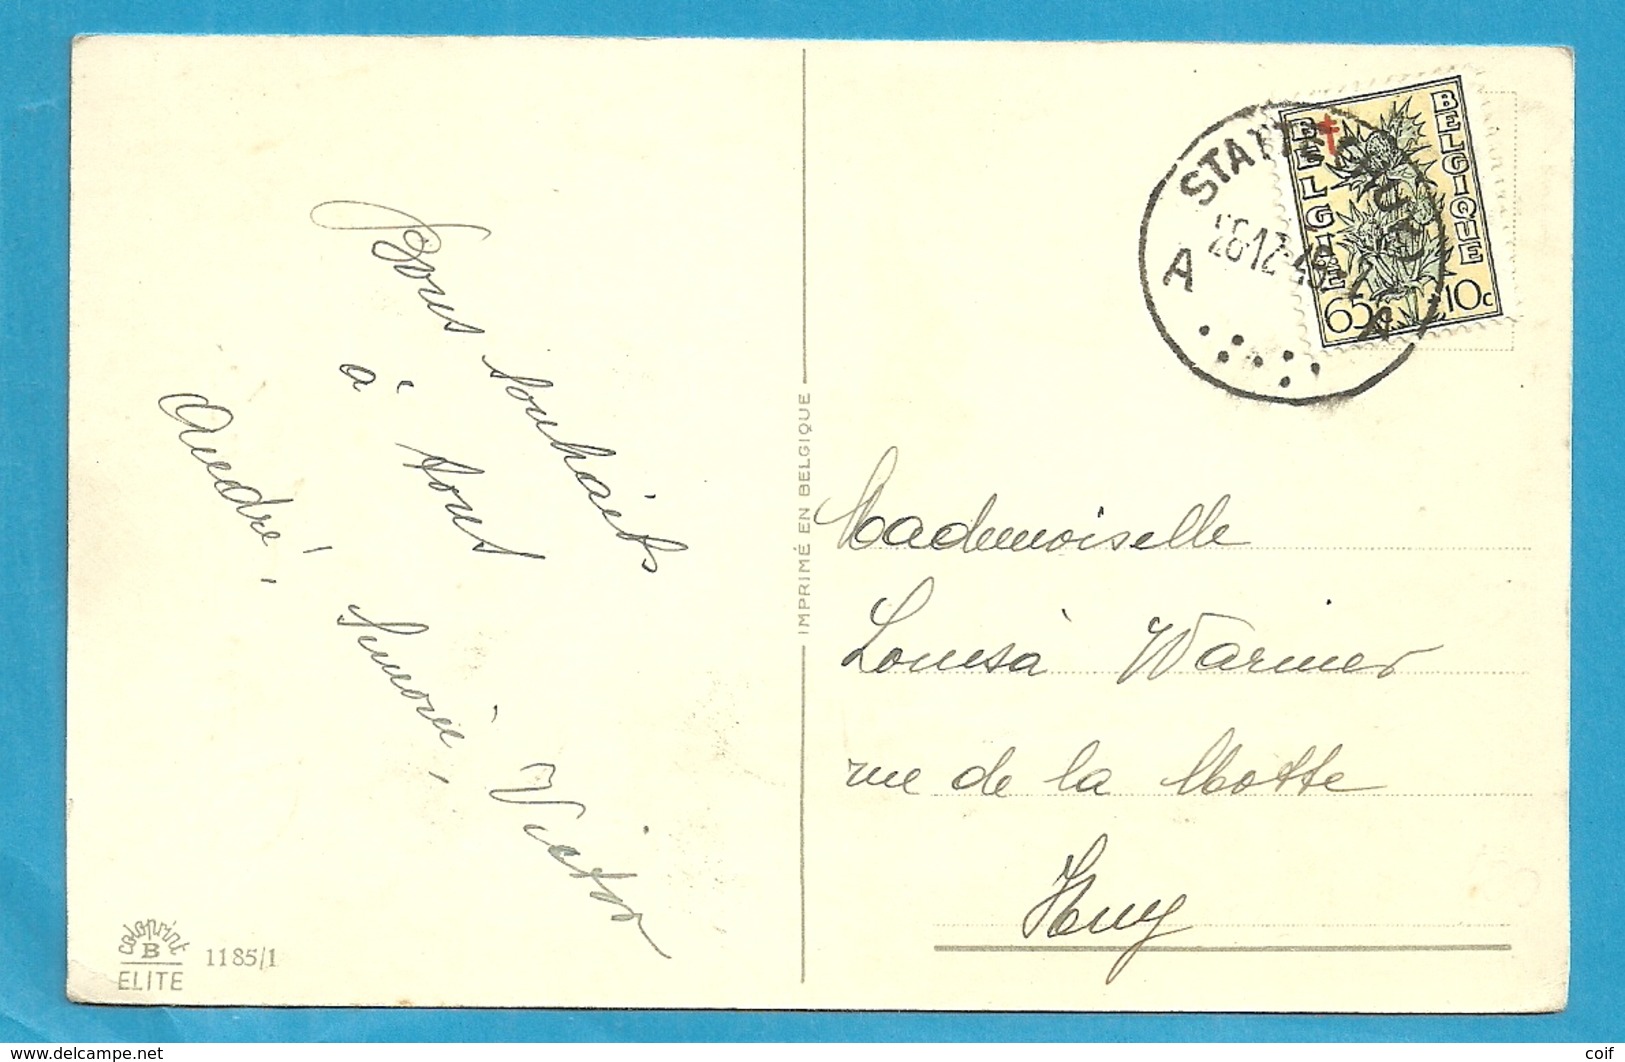 Bons souhaits
à tous
André, Simone, Victor
coloprint
B
ELITE
1185/1
IMPRIMÉ EN BELGIQUE
STATTE (HUY)
A
BELGIE
BELGIQUE
65c
10c
Mademoiselle
Louisa Warnier
rue de la Motte
Huy
www.delcampe.net
coif